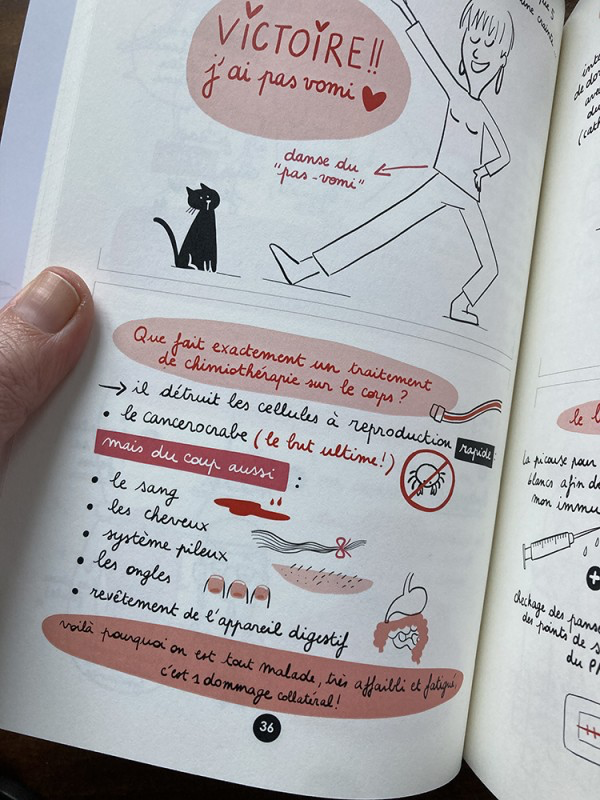 une crainte
VICTOIRE!!
j'ai pas vomi
danse du
"pas-vomi"
Que fait exactement un traitement
de chimiothérapie sur le corps ?
→ il détruit les cellules à reproduction rapide
• le cancerocrabe (le but ultime!)
mais du coup aussi :
• le sang
• les cheveux
• système pileux
• les ongles
• revêtement de l'appareil digestif
voilà pourquoi on est tout malade, très affaibli et fatigué,
c'est 1 dommage collatéral!
36
de do
du
(cat
le
la picouse pour
blancs afin d
mon immu
checkage des panse
des points de s
du P